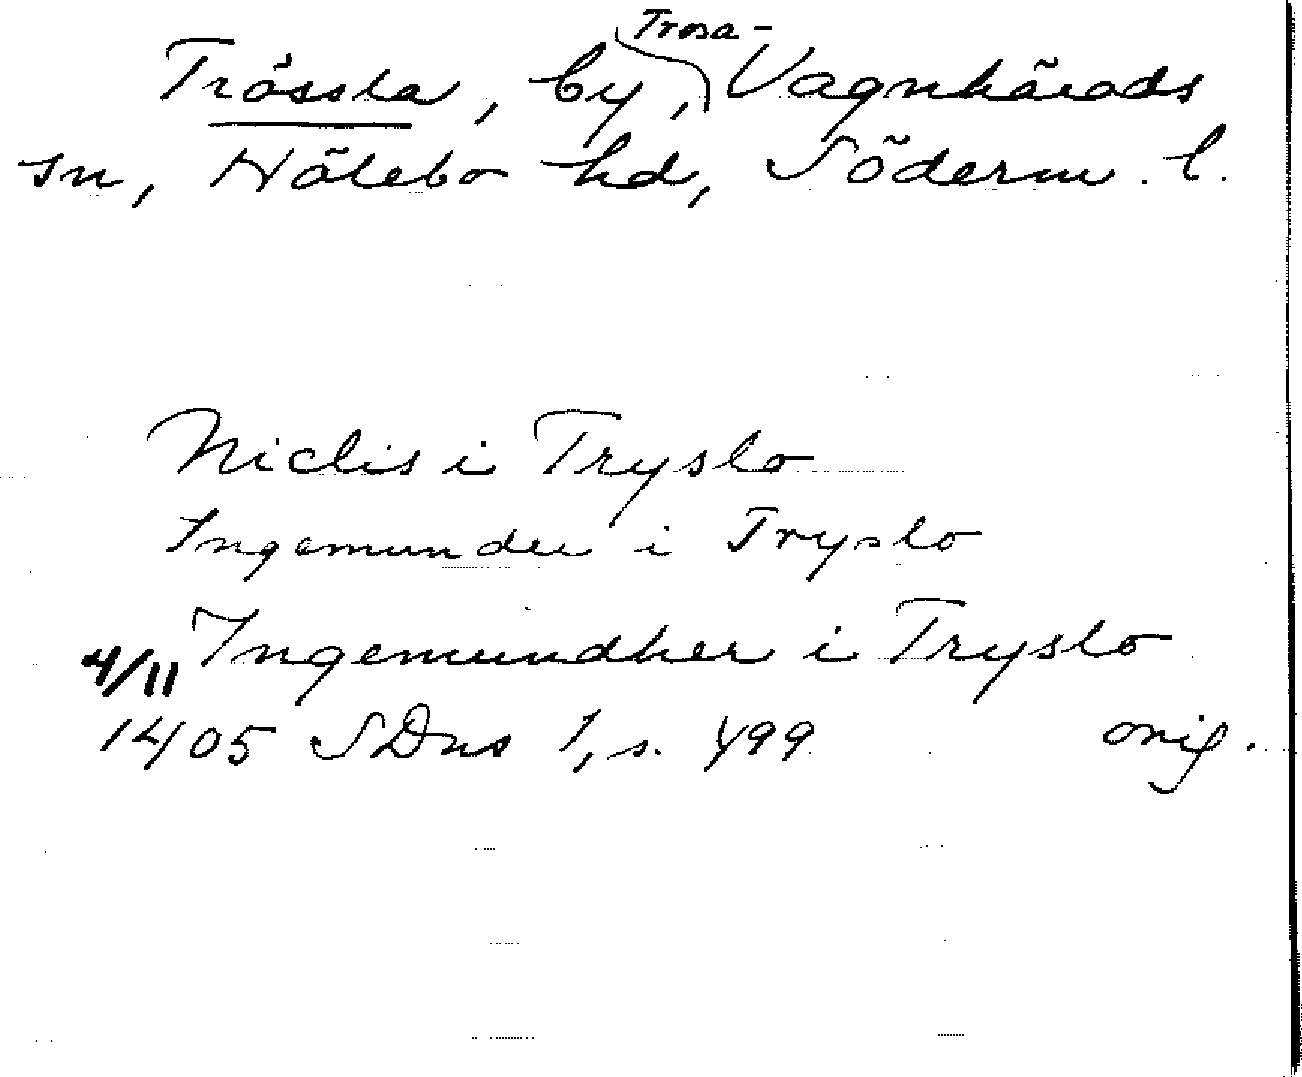 Trössla, by, Trosa-Vagnhärads
sn, Hölebo hd, Söderm. l.
Niclis i Tryslo
Ingemunder i Tryslo
Ingemundher i Tryslo
4/11
1405 SDns 1, s. 499 orig.